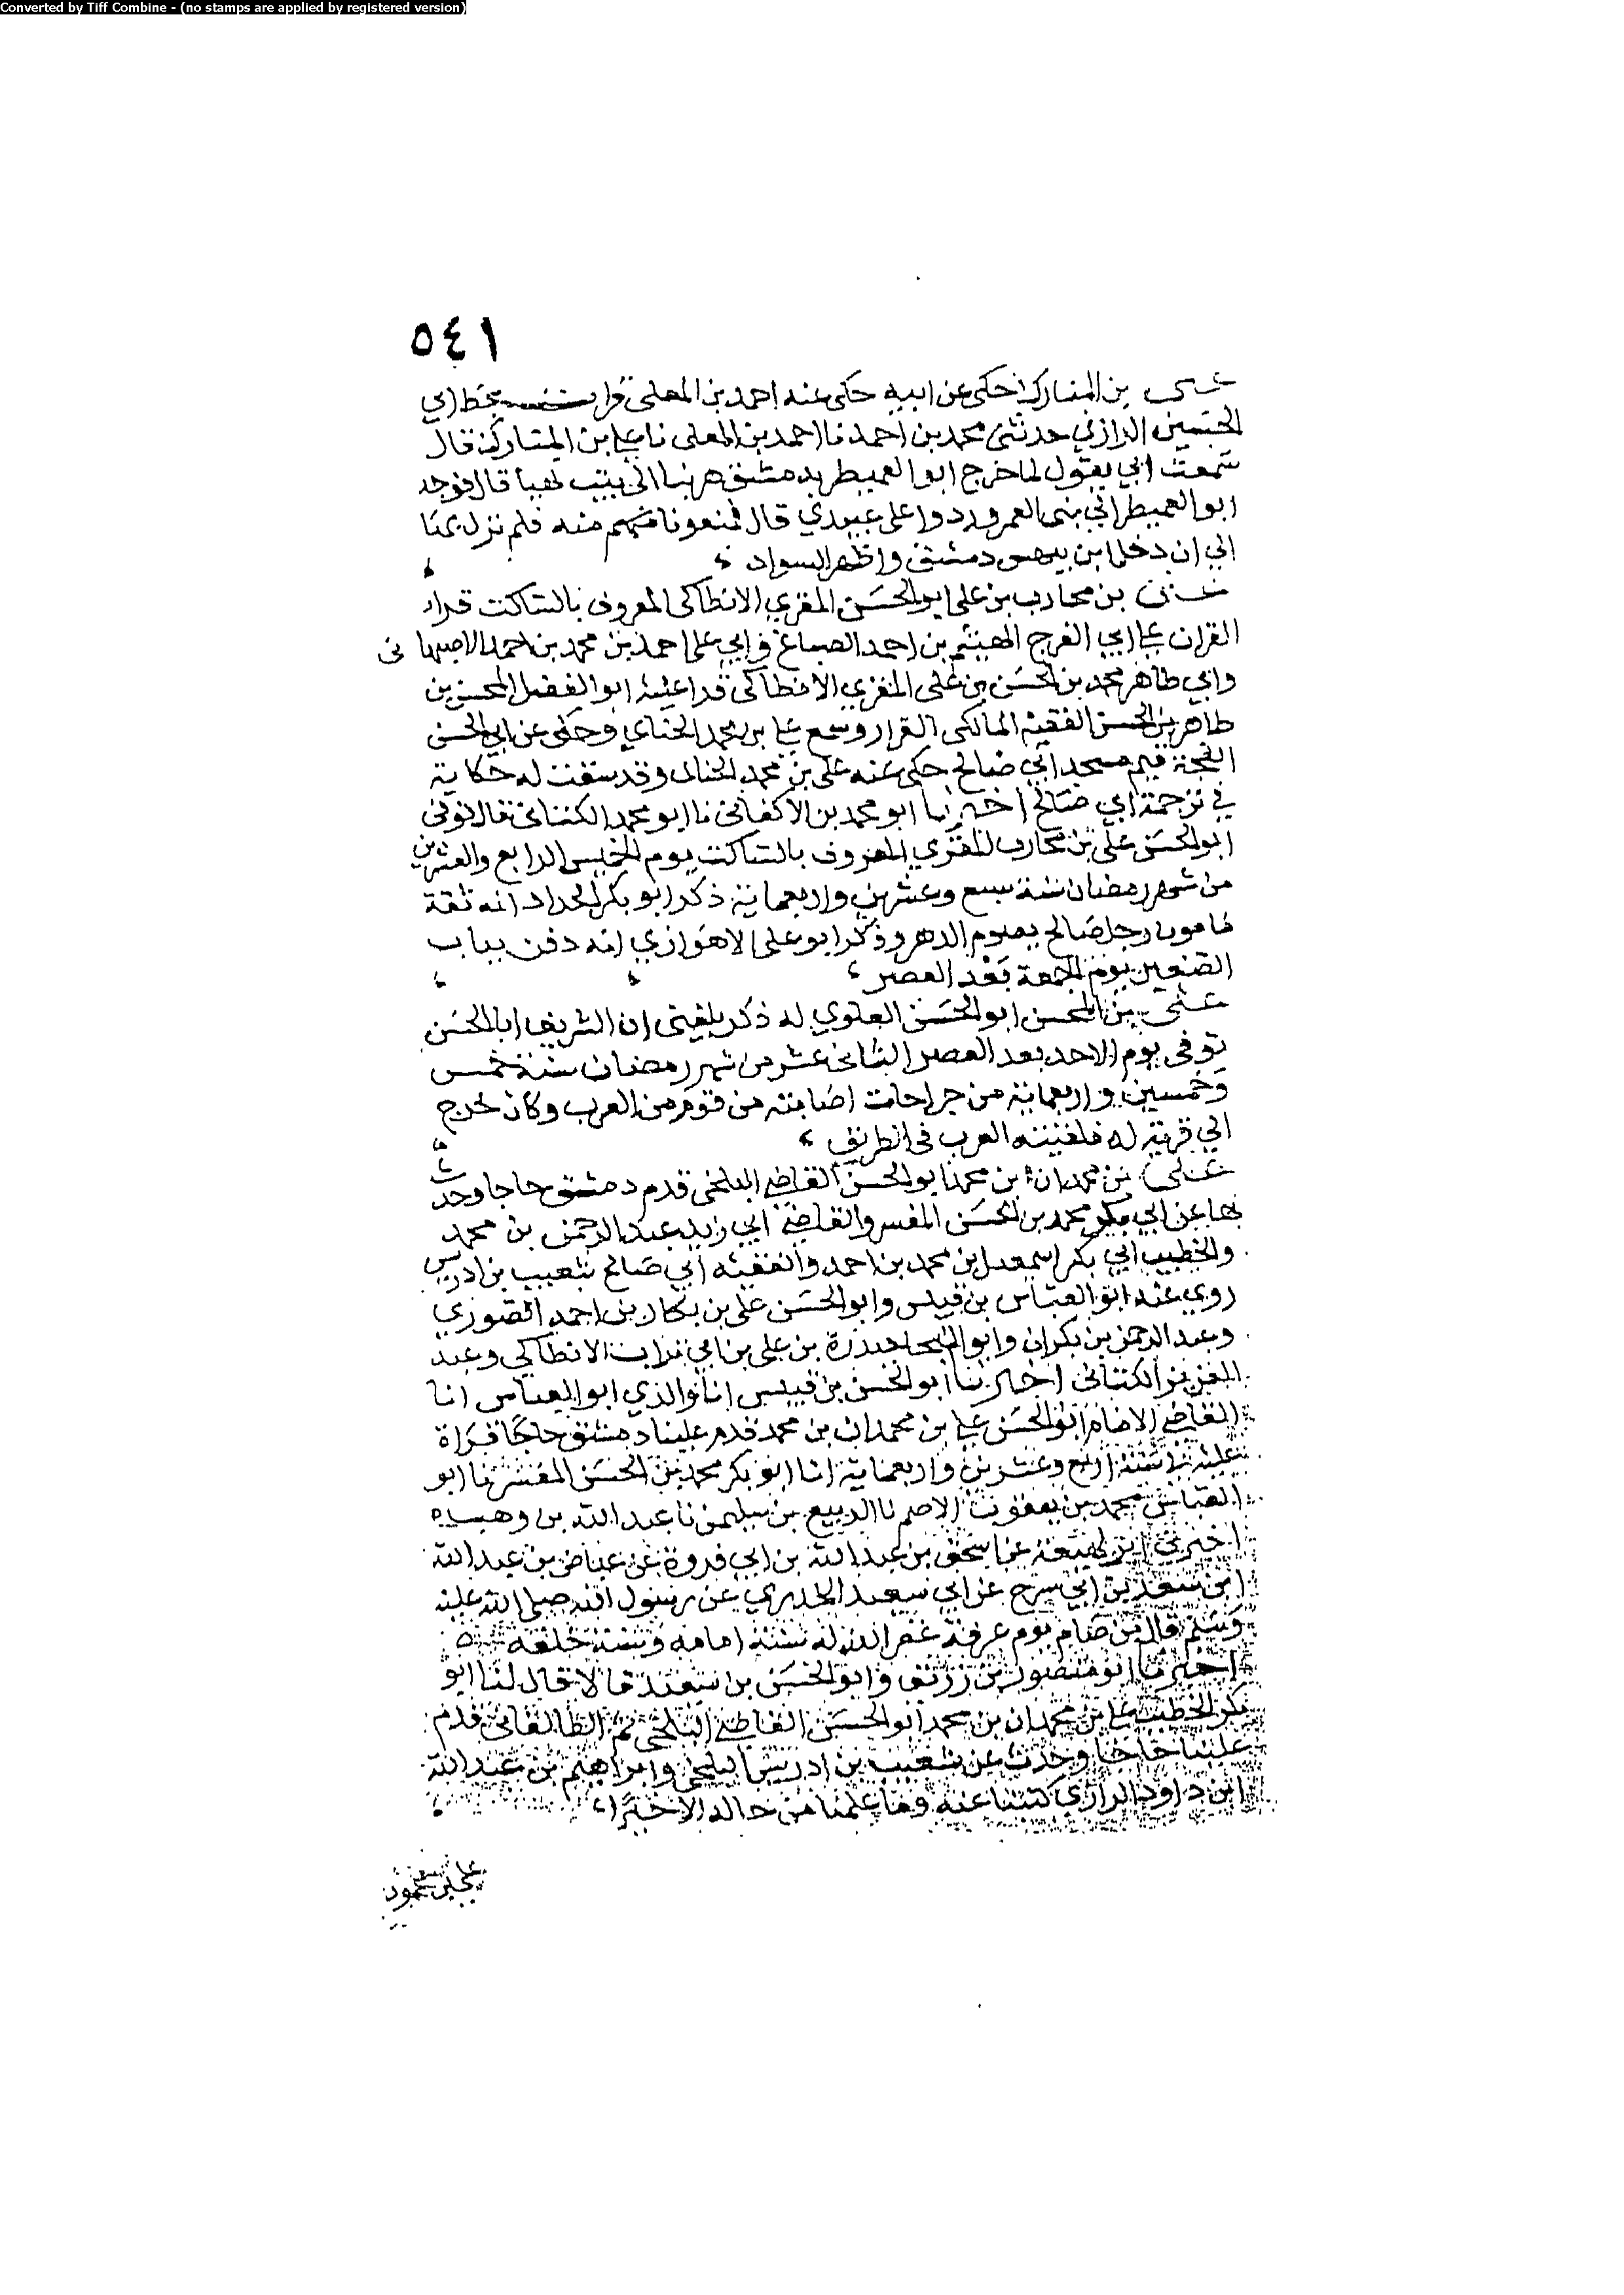 Converted by Tiff Combine - (no stamps are applied by registered version)
٥٤١
علي بن المبارك حكى عن ابيه حكى عنه احمد بن المعلى قرات بخط ابي
الحسين الرازي حدثني محمد بن احمد نا احمد بن المعلى نا علي بن المبارك قال
سمعت ابي يقول لما خرج ابو العميطر بدمشق هربنا الى بيت لهيا قال فوجه
ابو العميطر الى بني العمر وردوا على عبيدي قال فمنعونا منهم منه فلم نزل
الي ان دخل ابن بيهس دمشق واظهر السواد
علي بن محارب بن علي ابو الحسن المقري الانطاكي المعروف بالساكت قرا
القران علي ابي الفرج الهيثم بن احمد الصباغ وابي علي احمد بن محمد بن احمد الاصبهاني
وابي طاهر محمد بن الحسن بن علي المقري الانطاكي قرا عليه ابو الفضل المحسن بن
طاهر بن الحسن الفقيه المالكي القران وسمع علي بن محمد الحناي وحكى عن ابي الحسن
قيم مسجد ابي صالح حكى عنه علي بن محمد الحناي وقد سقت له حكاية
في ترجمة ابي صالح اخبرنا ابو محمد بن الاكفاني نا ابو محمد الكتاني قال توفي
ابو الحسن علي بن محارب المقري المعروف بالساكت يوم الخميس الرابع والعشرين
من شهر رمضان سنة سبع وعشرين واربعماية ذكر ابو بكر الحداد انه ثقة
مامون رجل صالح يصوم الدهر وذكر ابو علي الاهوازي انه دفن بباب
الصغير يوم الجمعة بعد العصر
علي بن المحسن ابو الحسن العلوي له ذكر بلغني ان الشريف ابا الحسن
توفي يوم الاحد بعد العصر الثاني عشر من شهر رمضان سنة خمس
وخمسين واربعماية من جراحات اصابته من قوم من العرب وكان خرج
الي قرية له فلقيته العرب في الطريق
علي بن محمدان بن محمد ابو الحسن القاضي البلخي قدم دمشق حاجا وحدث
بها عن ابي بكر محمد بن الحسن المفسر والقاضي ابي زيد عبد الرحمن بن محمد
والخطيب ابي بكر اسمعيل بن محمد بن احمد والفقيه ابي صالح شعيب بن ادريس
روي عنه ابو العباس بن قبيس وابو الحسن علي بن بكار بن احمد الصوري
وعبد الرحمن بن بكران وابو حيدرة بن علي بن ابي تراب الانطاكي وعبد
العزيز الكتاني اخبرنا ابو الحسن بن قبيس انا والدي ابو العباس انا
القاضي الامام ابو الحسن علي بن محمدان بن محمد قدم علينا دمشق حاجا قراة
عليه في سنة اربع وعشرين واربعماية انا ابو بكر محمد بن الحسن المفسر نا ابو
العباس محمد بن يعقوب الاصم نا الربيع بن سليمن نا عبد الله بن وهب
اخبرني ابن لهيعة عن اسحق بن عبد الله بن ابي فروة عن عياض بن عبد الله
ابن سعد بن ابي سرح عن ابي سعيد الخدري عن رسول الله صلى الله عليه
وسلم قال من صام يوم عرفة غفر الله له سنة امامه وسنة خلفه
اخبرنا ابو منصور بن زريق وابو الحسن بن سعيد قالا قال لنا ابو
بكر الخطيب علي بن محمدان بن محمد ابو الحسن القاضي البلخي ثم الطالقاني قدم
علينا حاجا وحدث عن شعيب بن ادريس البلخي وابراهيم بن عبد الله
ابن داود الرازي كتبنا عنه وما علمنا من حاله الا خيرا
علي بن محمود